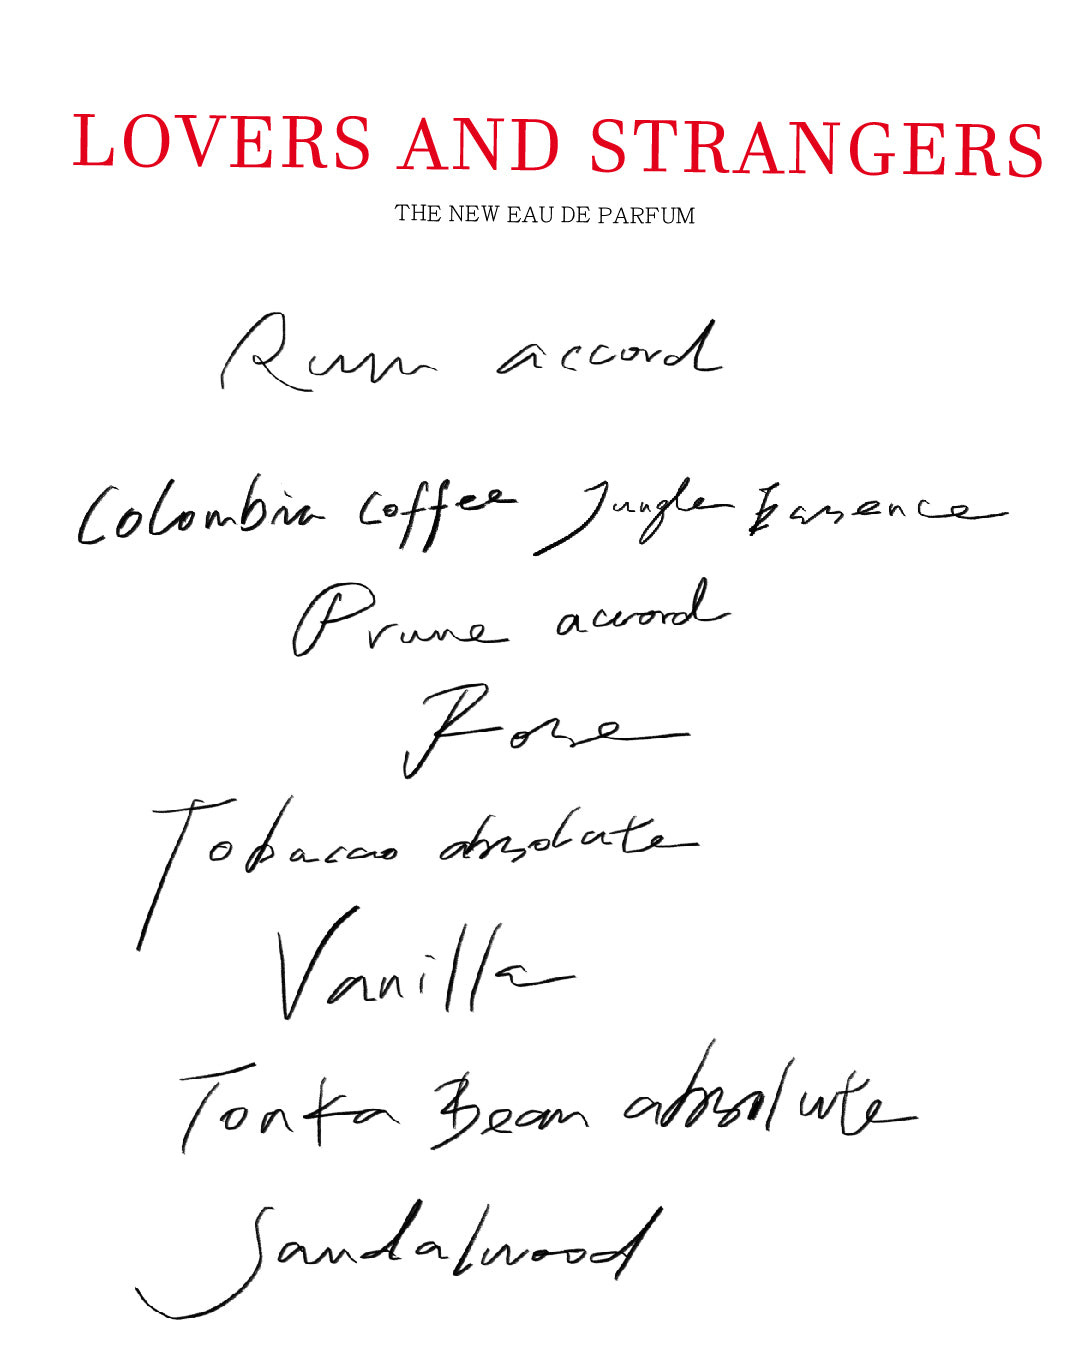 LOVERS AND STRANGERS
THE NEW EAU DE PARFUM
Rum accord
Colombia coffee Jungle Essence
Prune accord
Rose
Tobacco absolute
Vanilla
Tonka Bean absolute
Sandalwood